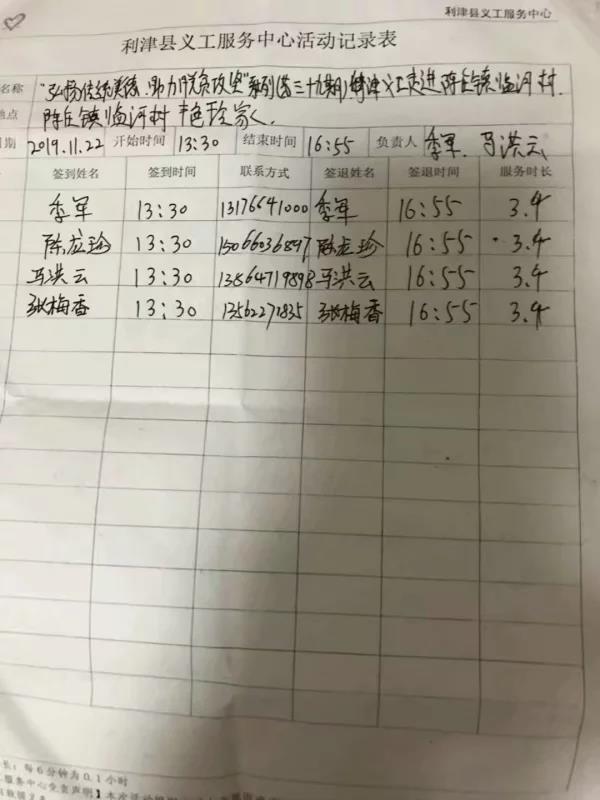 利津县义工服务中心
利津县义工服务中心活动记录表
名称 "弘扬传统美德,助力脱贫攻坚"系列(第三十九期)利津义工走进陈庄镇临河村.
地点 陈庄镇临河村
日期 2019.11.22 开始时间 13:30 结束时间 16:55 负责人 季军. 马洪云
签到姓名 签到时间 联系方式 签退姓名 签退时间 服务时长
季军 13:30 13176641000 季军 16:55 3.4
陈龙珍 13:30 15066036897 陈龙珍 16:55 3.4
马洪云 13:30 13864719898 马洪云 16:55 3.4
张梅香 13:30 13562271835 张梅香 16:55 3.4
长:每6分钟为0.1小时
服务中心免责声明】本次活动